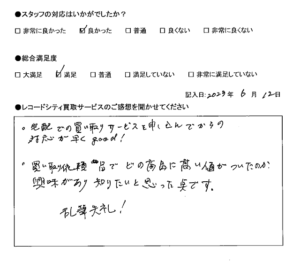 ●スタッフの対応はいかがでしたか?
□ 非常に良かった ☑ 良かった □ 普通 □ 良くない □ 非常に良くない
●総合満足度
□ 大満足 ☑ 満足 □ 普通 □ 満足していない □ 非常に満足していない
記入日:2024年 6月 12日
●レコードシティ買取サービスのご感想を聞かせてください
・宅配での買い取りサービスを申し込んでからの
対応が早く good!
・買い取り依頼 品でどの商品に高い値がついたのか
興味があり 知りたいと思った点です。
乱筆失礼!